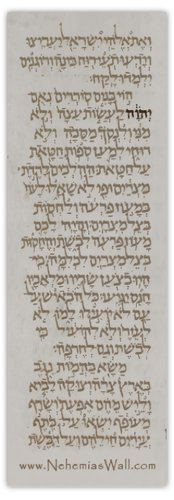 ואת אלהי ישראל יעריצו
וידעו תעי רוח בינה ורוגנים
ילמדו לקח
הוי בנים סוררים נאם
יהוה לעשות עצה ולא
מני ולנסך מסכה ולא
רוחי למען ספות חטאת
על חטאת ההלכים לרדת
מצרים ופי לא שאלו לעוז
במעוז פרעה ולחסות
בצל מצרים והיה לכם
מעוז פרעה לבשת והחסות
בצל מצרים לכלמה כי
היו בצען שריו ומלאכיו
חנס יגיעו כל הבאיש על
עם לא יועילו למו לא
לעזר ולא להועיל כי
לבשת וגם לחרפה
משא בהמות נגב
בארץ צרה וצוקה לביא
וליש מהם אפעה ושרף
מעופף ישאו על כתף
עירים חילהם ועל דבשת
www.NehemiasWall.com